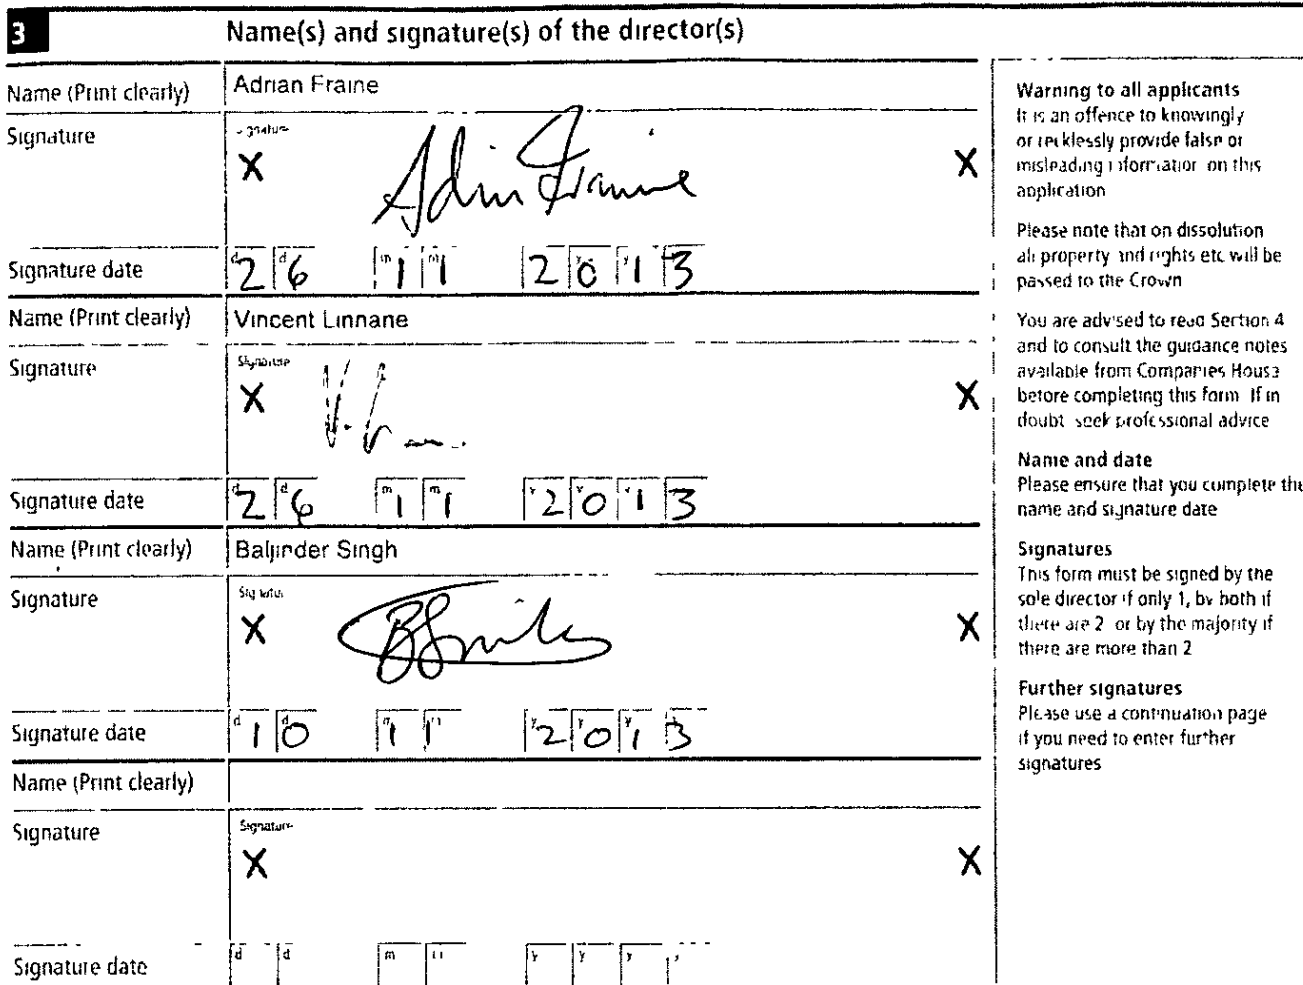 3 Name(s) and signature(s) of the director(s)
Name (Print clearly) Adrian Fraine
Signature Signature
X Adrian Fraine X
Signature date d2 d6 m1 m1 2 y0 y1 3
Name (Print clearly) Vincent Linnane
Signature Signature
X X
Signature date d2 d6 m1 m1 y2 y0 y1 3
Name (Print clearly) Baljinder Singh
Signature Signature
X X
Signature date d1 d0 m1 m1 y2 y0 y1 y3
Name (Print clearly)
Signature Signature
X X
Signature date d d m m y y y y
Warning to all applicants
It is an offence to knowingly
or recklessly provide false or
misleading information on this
application
Please note that on dissolution
all property and rights etc will be
passed to the Crown
You are advised to read Section 4
and to consult the guidance notes
available from Companies House
before completing this form If in
doubt seek professional advice
Name and date
Please ensure that you complete the
name and signature date
Signatures
This form must be signed by the
sole director if only 1, by both if
there are 2 or by the majority if
there are more than 2
Further signatures
Please use a continuation page
if you need to enter further
signatures